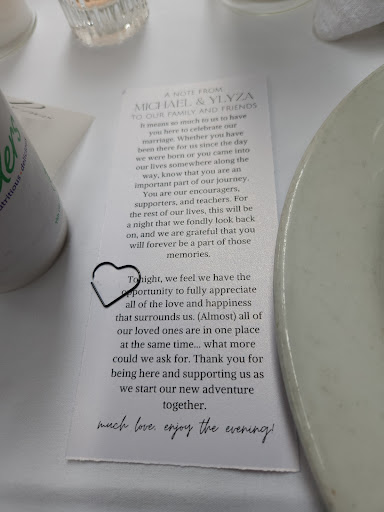 A NOTE FROM
MICHAEL & YLYZA
TO OUR FAMILY AND FRIENDS
It means so much to us to have
you here to celebrate our
marriage. Whether you have
been there for us since the day
we were born or you came into
our lives somewhere along the
way, know that you are an
important part of our journey.
You are our encouragers,
supporters, and teachers. For
the rest of our lives, this will be
a night that we fondly look back
on, and we are grateful that you
will forever be a part of those
memories.
Tonight, we feel we have the
opportunity to fully appreciate
all of the love and happiness
that surrounds us. (Almost) all of
our loved ones are in one place
at the same time... what more
could we ask for. Thank you for
being here and supporting us as
we start our new adventure
together.
much love, enjoy the evening!